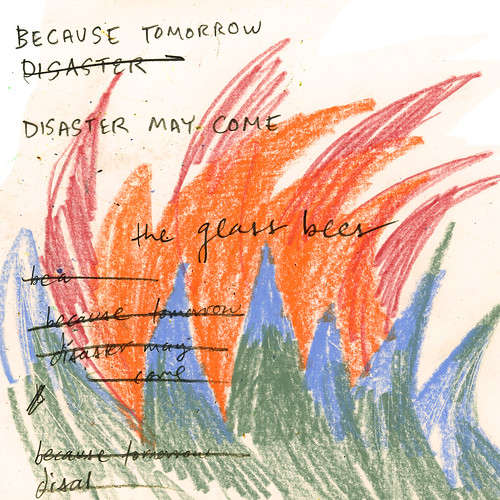 BECAUSE TOMORROW
DISASTER
DISASTER MAY COME
the glass bees
bea
because tomorrow
disaster may
come
because tomorrow
disas